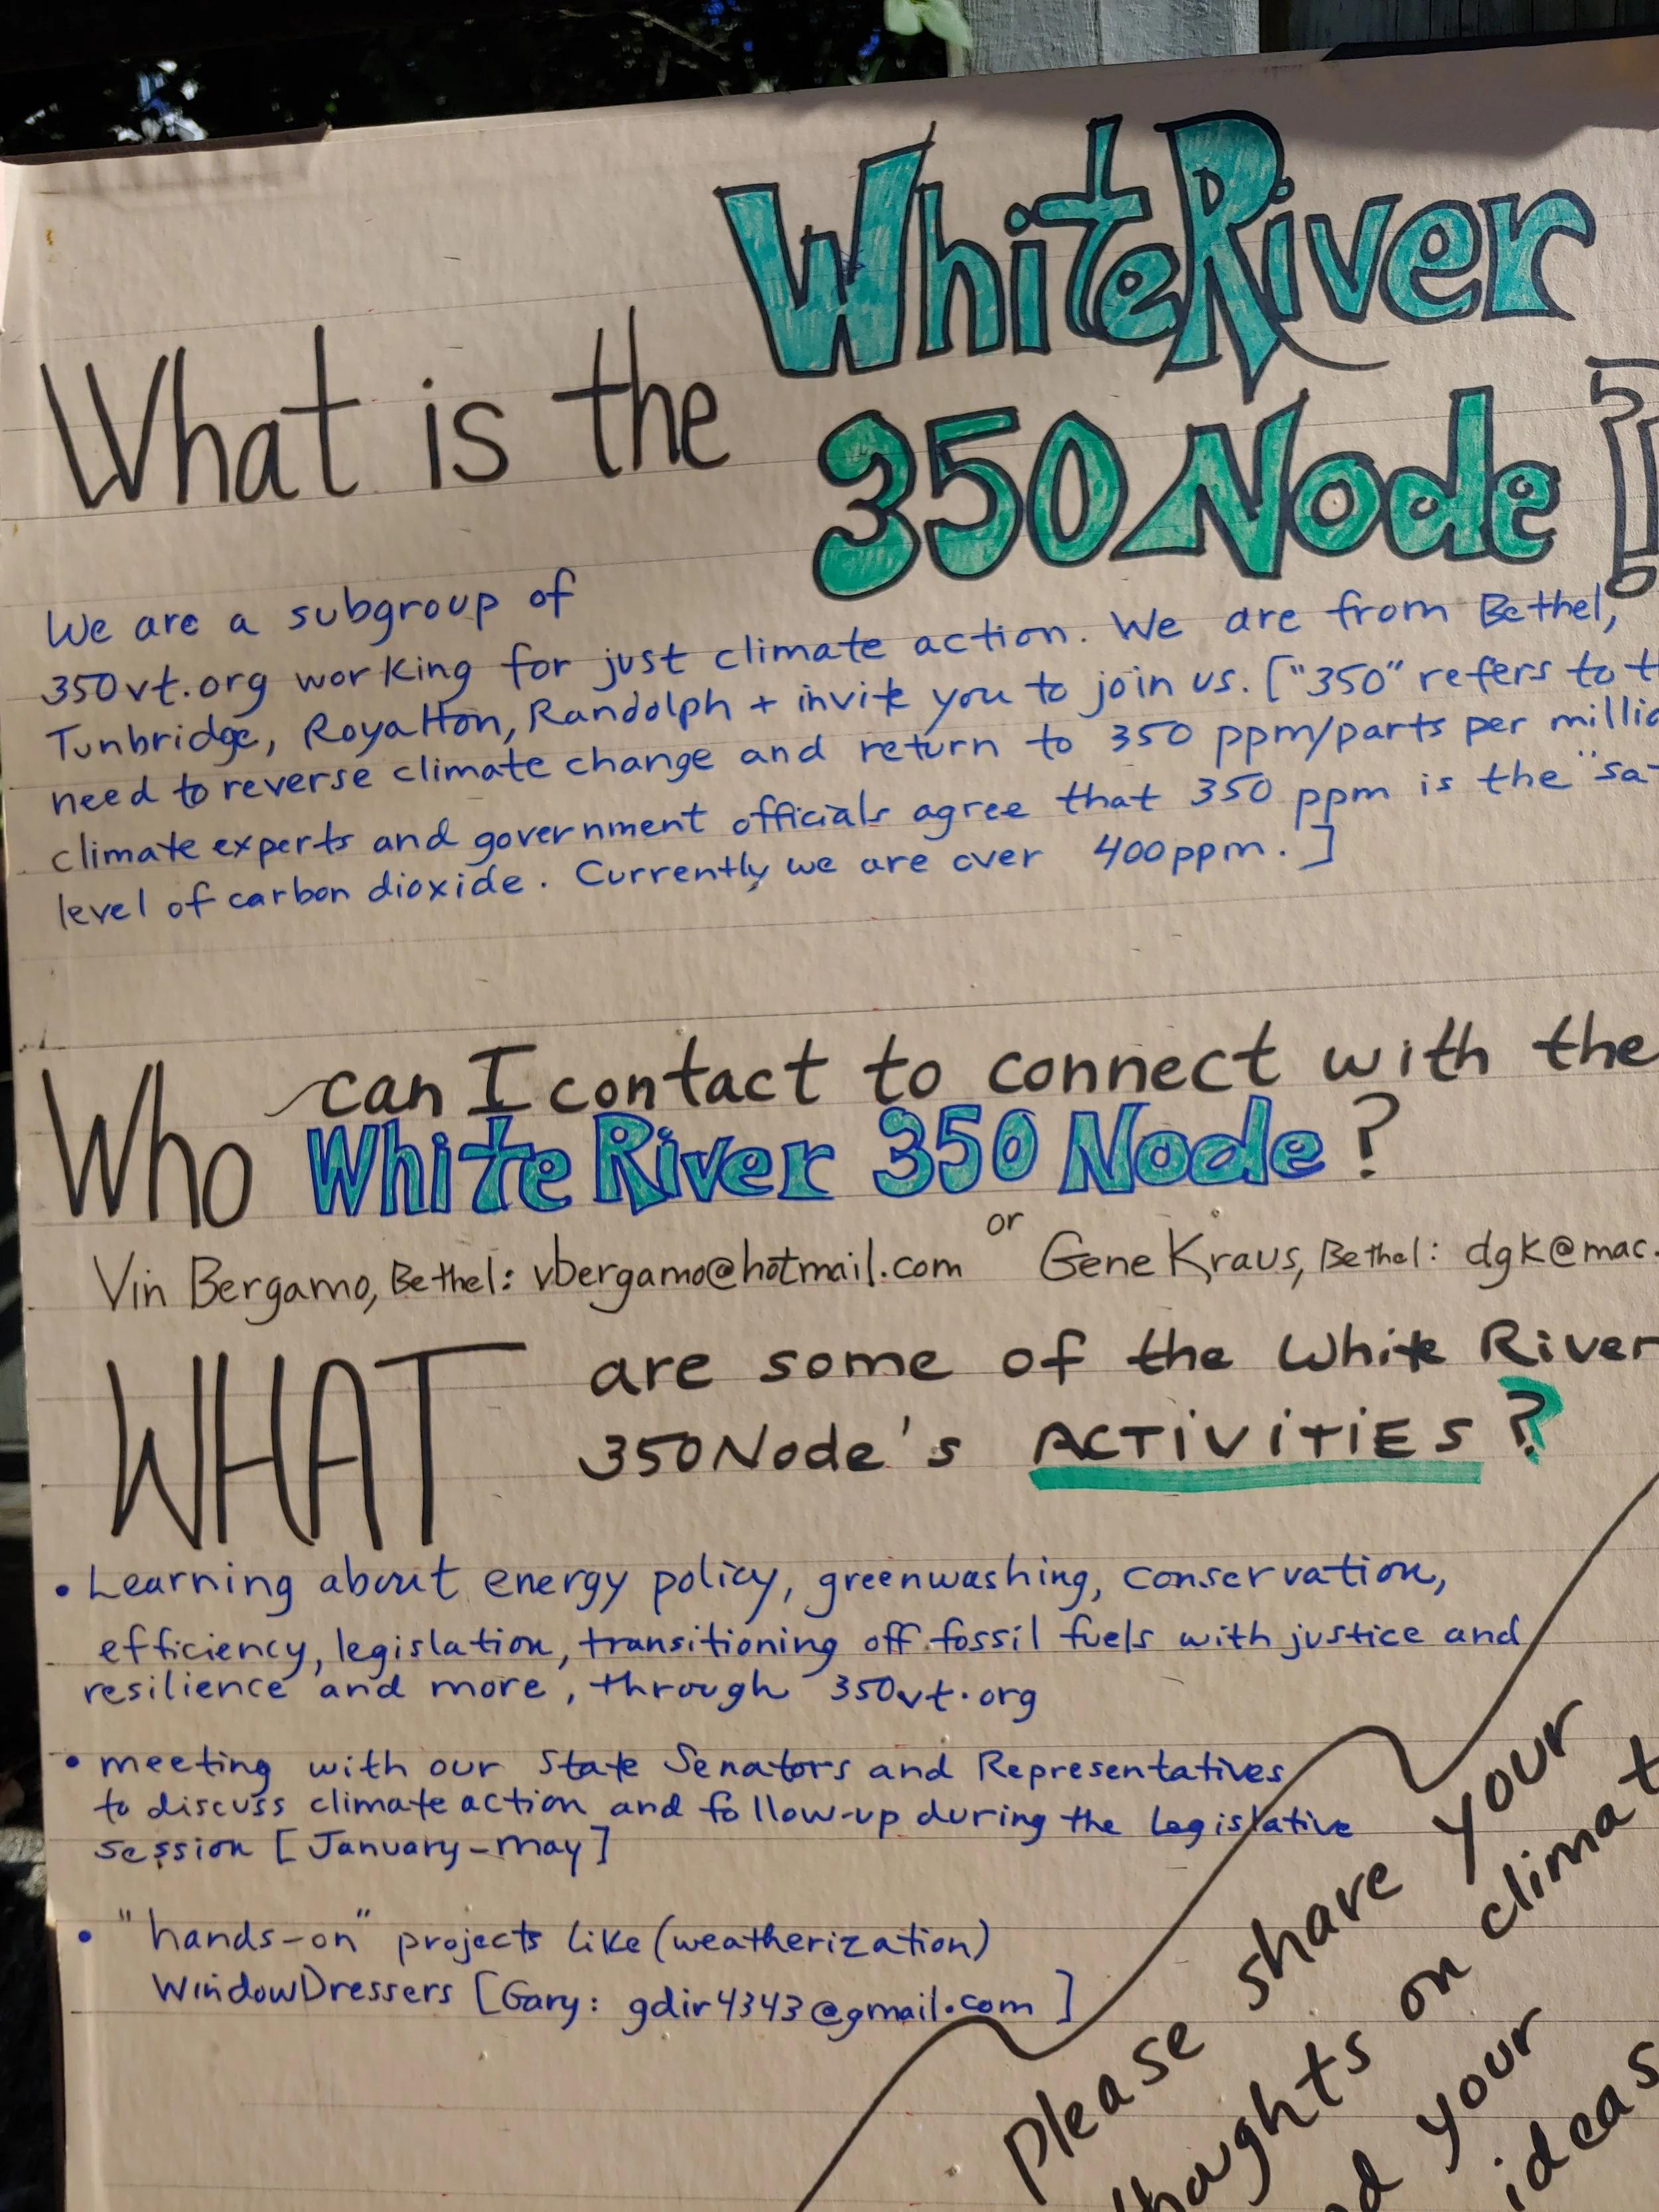 What is the White River
350 Node?
We are a subgroup of
350vt.org working for just climate action. We are from Bethel,
Tunbridge, Royalton, Randolph + invite you to join us. ["350" refers to
need to reverse climate change and return to 350 ppm/parts per
climate experts and government officials agree that 350 ppm is the
level of carbon dioxide. Currently we are over 400ppm.]
Who can I contact to connect with the
White River 350 Node?
Vin Bergamo, Bethel: vbergamo@hotmail.com or Gene Kraus, Bethel: dgk@mac.
WHAT are some of the White River
350Node's ACTiViTiES?
• Learning about energy policy, greenwashing, conservation,
efficiency, legislation, transitioning off fossil fuels with justice and
resilience and more, through 350vt.org
• meeting with our State Senators and Representatives
to discuss climate action and follow-up during the Legislative
session [January-May]
• "hands-on" projects like (weatherization)
WindowDressers [Gary: gdir4343@gmail.com]
Please share your
on
your
ideas